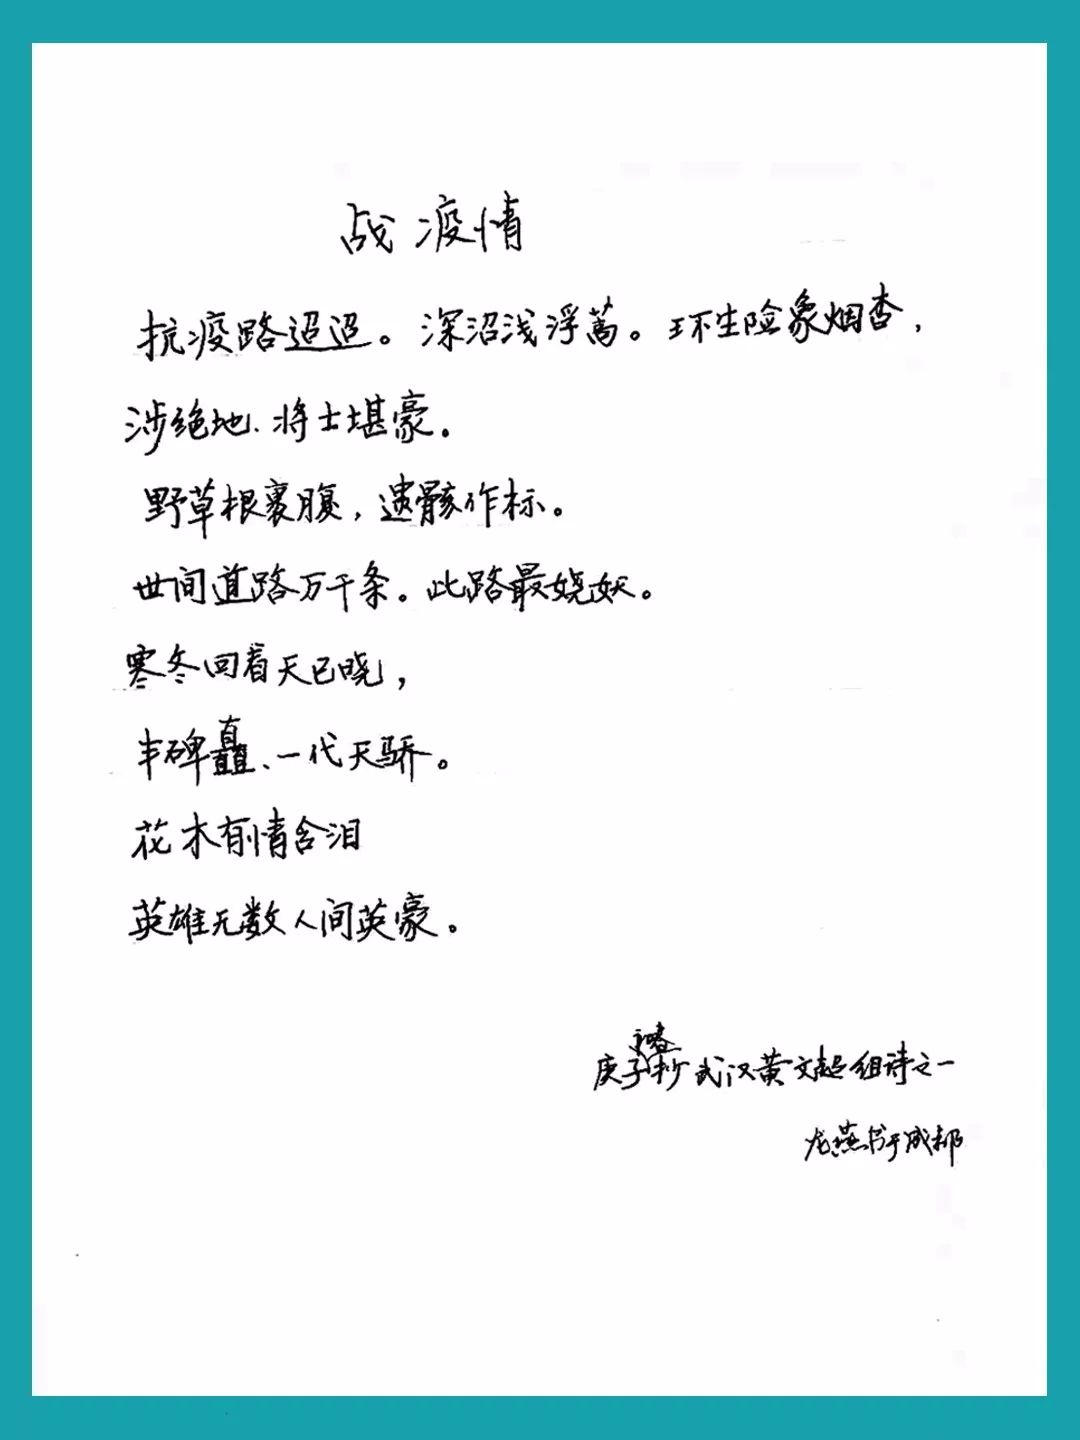 战疫情
抗疫路迢迢。深沼浅浮蒿。环生险象烟杳，
涉绝地、将士堪豪。
野草根裹腹，遗骸作标。
世间道路万千条。此路最娆妖。
寒冬回看天已晓，
丰碑矗、一代天骄。
花木有情含泪
英雄无数人间英豪。
庚子春抄武汉黄文超组诗之一
龙燕书于成都